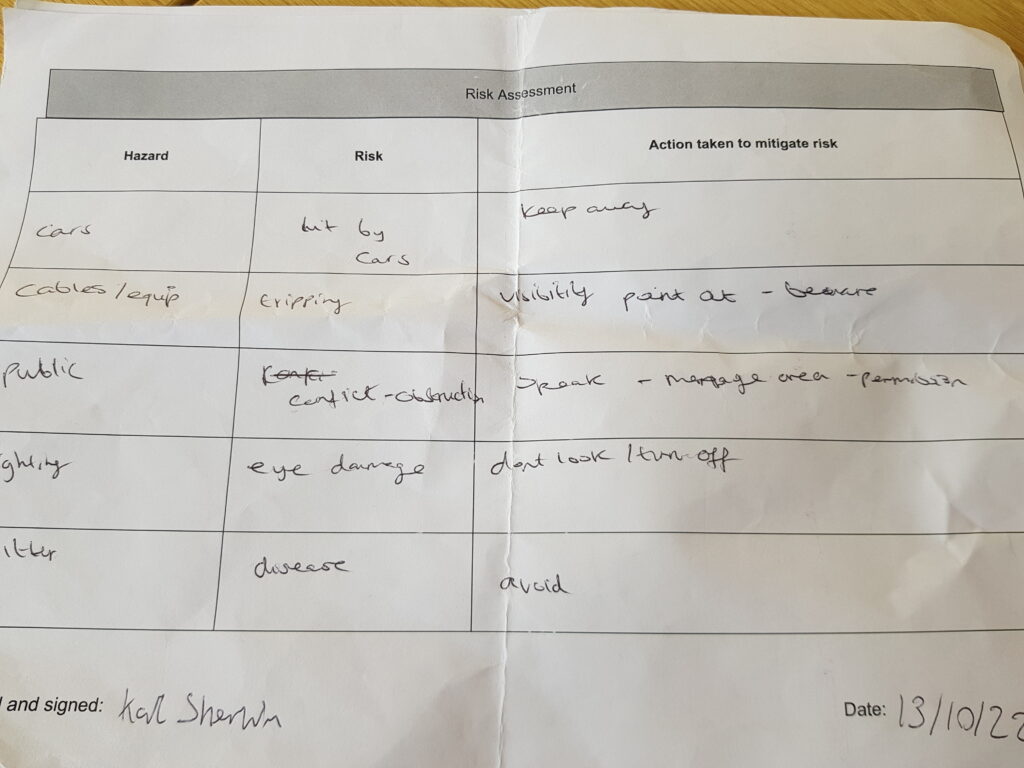 Risk Assessment
Hazard Risk Action taken to mitigate risk
cars hit by cars Keep away
Cables/equip tripping visibility point at - beware
public conflict-obstruction Speak - manage area - permission
ghting eye damage dont look / turn off
itter disease avoid
and signed: Date: 13/10/22